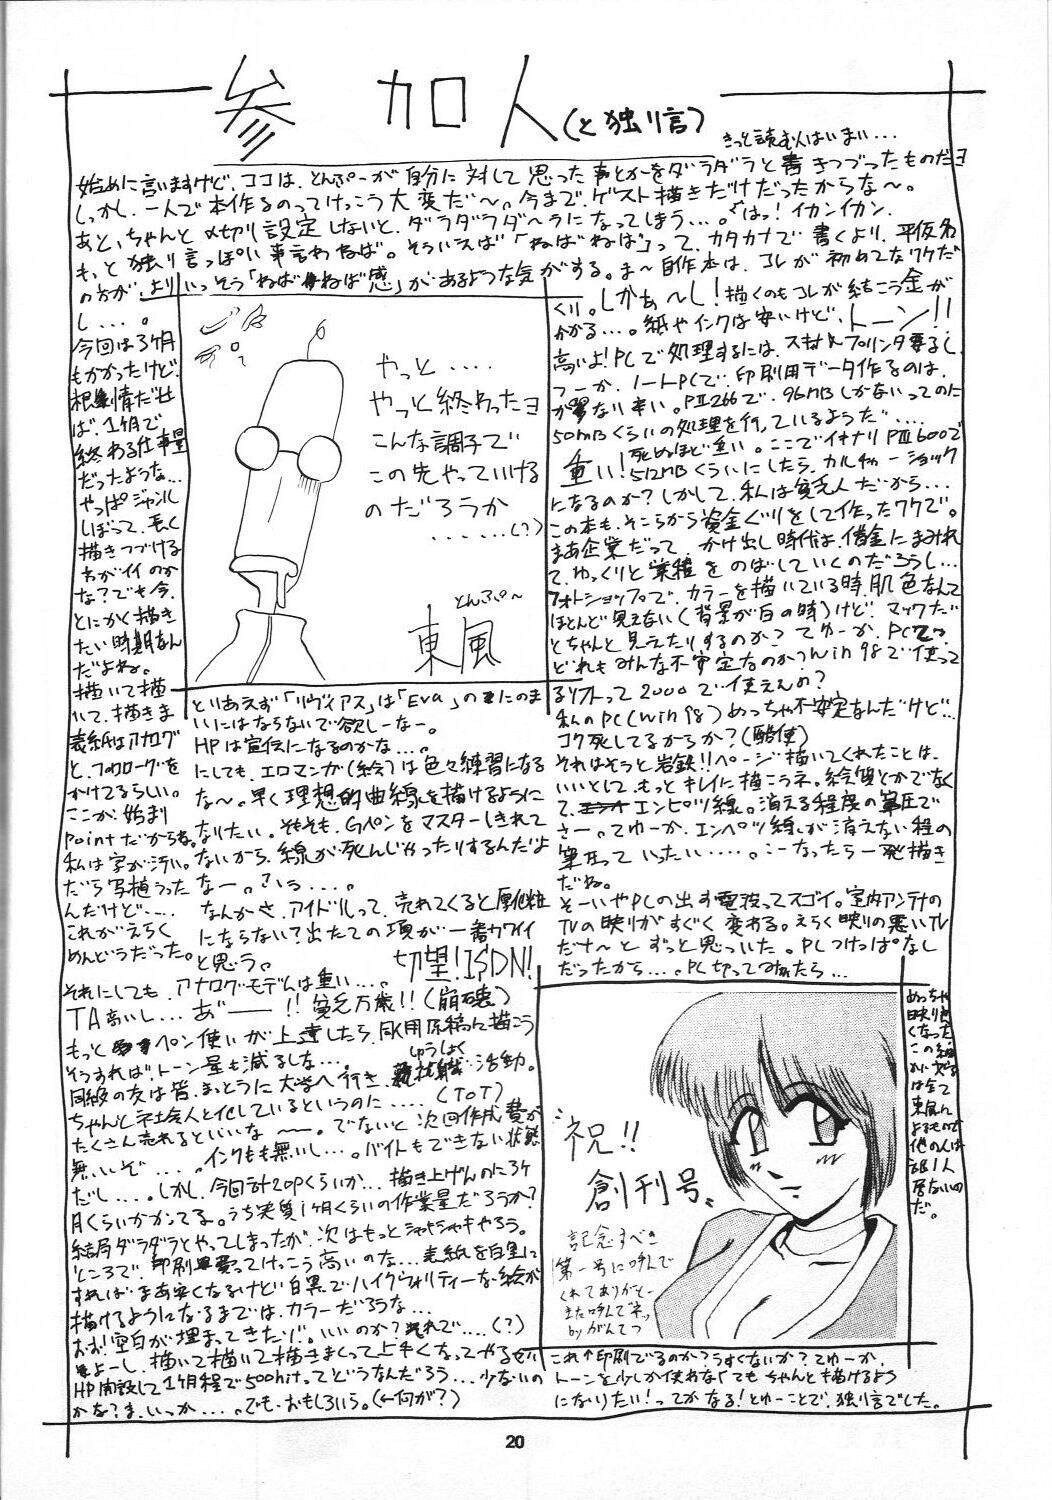 参加人(と独り言)
きっと読む人はいまい...
始めに言いますけど、ココは、とんぷーが自分に対して思った事とかをダラダラと書きつづったものだヨ
しかし、一人で本作るのってけっこう大変だ〜。今まで、ゲスト描きだけだったからな〜。
あと、ちゃんと〆切り設定しないと、ダラダラダ〜ラになってしまう...。はっ!イカンイカン、
もっと独り言っぽい事言わねば。そういえば「ねばねば」って、カタカナで書くより、平仮名
の方が、よりいっそう「ねばねば感」があるような気がする。ま〜自作本は、コレが初めてなワケだ
し....。
今回は3ヶ月
もかかったけど、
根情だせ
ば、1ヶ月で
終わる仕事量
だったような...
やっぱジャンル
しぼって、長く
描きつづける
わがイイのか
な?でも今、
とにかく描き
たい時期なん
だよね。
描いて描
いて、描きま
表紙はアナログ
と、フォトローグを
かけてるらしい。
ここが、始まり
Pointだからね。
私は字が汚い。
だら写植うった
んだけど....
これがえらく
めんどうだった。
やっと....
やっと終わったヨ
こんな調子で
この先やっていける
のだろうか
......(?)
とんぷ〜
東風
くり。しかぁ〜し!描くのもコレが結こう金が
かかる...。紙やインクは安いけど、トーン!!
高いよ!PCで処理するには、スキャ&プリンタ要るし、
つーか、ノートPCで、印刷用データ作るのは、
が辛い。PⅡ266で、96MBしかないってのに
50MBくらいの処理を行っているようだ....
死ぬほど重い。ここでイキナリPⅢ600で
重い!512MBくらいにしたら、カルチャーショック
になるのか?しかして、私は貧乏人だから...
この本も、そこらから資金ぐりをして作ったワケで。
まあ企業だって、かけ出し時代は、借金にまみれ
て、ゆっくりと業種をのばしていくのだろうし...
フォトショップで、カラーを描いている時、肌色なんて
ほとんど見えない(背景が白の時)けど、マックだ
とちゃんと見えたりするのか?てゆーか、PCって
どれもみんな不安定なのか?Win98で使って
るソフトって2000で使えんの?
私のPC(Win98)めっちゃ不安定なんだけど...
コク死してるからか?(酷使)
それはそうと岩鉄!!ページ描いてくれたことは、
いいとして、もっとキレイに描こうネ。絵とかでなく
て、エンピツ線。消える程度の筆圧で
さー。てゆーか、エンペツ線が消えない程の
筆圧っていったい....。こーなったら一発描き
だね。
そーいやPCの出す電波ってスゴイ。室内アンテナの
TVの映りがすぐく変わる。えらく映りの悪いTV
だナ〜とずっと思っていた。PCつけっぱなし
だったから...。PC切ってみたら...
とりあえず「リヴァイアス」は「Eva」の二のま
いにはならないで欲しーなー。
HPは宣伝になるのかな...。
にしても、エロマンガ(絵)は色々練習になる
な〜。早く理想的曲線を描けるように
なりたい。そもそも、Gペンをマスターしきれて
ないから、線が死んじゃったりするんだよ
なー。さいっ....。
なんかさ、アイドルって、売れてくると厚化粧
にならない?出たての頃が一番カワイイ
と思う。
切望!ISDN!
それにしても、アナログモデムは重い...。
TA高いし...あ゛ーーー!!貧乏万歳!!(崩壊)
もっとペン使いが上達したら、B4用原稿に描こう
そうすれば、トーン量も減るしな...
同級の友は皆、まっとうに大学へ行き、就職活動。
しゅうしょく
ちゃんと社会人と化しているというのに....(ToT)
たくさん売れるといいな〜ー。でないと、次回作成費が
無いぞ....。インクも無いし...。バイトもできない状態
だし....。しかし、今回計20Pくらいか...描き上げんのに3ヶ
月くらいかかってる。うち実質1ヶ月くらいの作業量だろうか?
結局ダラダラとやってしまったが、次はもっとシャキシャキやろう。
ところで、印刷費ってけっこう高いのな...表紙を白黒に
すれば、まあ安くなるけど、白黒でハイクヴォリティーな絵が
描けるようになるまでは、カラーだろうな...
おお!空白が埋まってきたゾ。いいのか?それで....(?)
よーし、描いて描いて描きまくって上手くなってやるぜい
HP開設して1ヶ月程で500hitってどうなんだろう...少ないの
かな?ま、いっか....。でも、おもしろいう。(←何が?)
祝!!
創刊号
記念すべき
第一号に呼んで
くれてありがと〜
また呼んでネッ
byがんてつ
めっちゃ
映り良
くなった
この紙
は全て
東風に
よるもので
他の人は
1人
居ないの
だ。
これ↑印刷でるのか?うすくないか?てゆーか、
トーンを少しか使わなくてもちゃんと描けるよう
になりたい!ってかなる!とゆーことで、独り言でした。
20